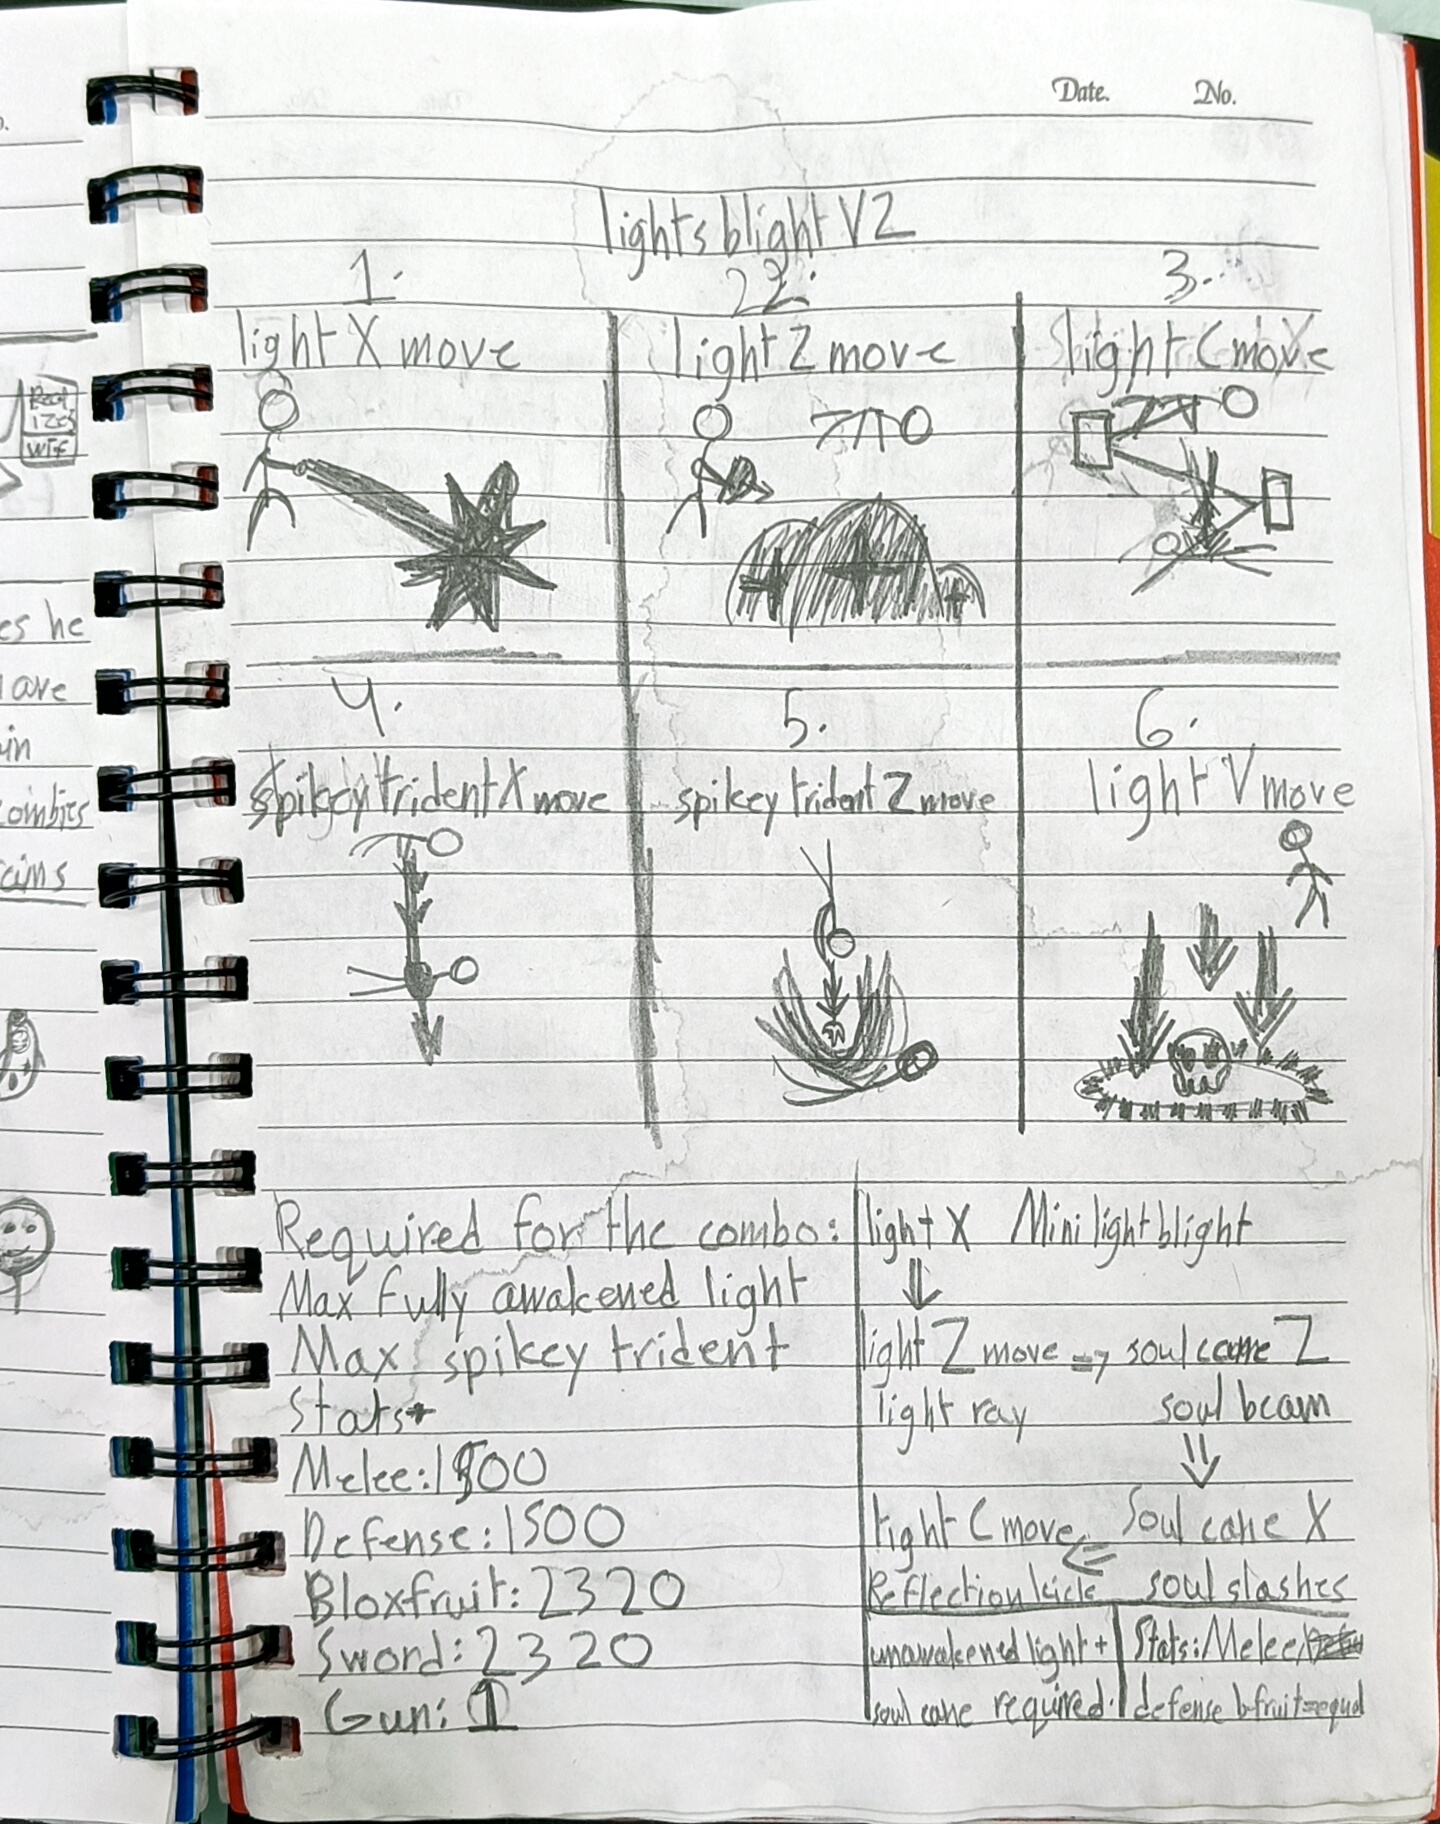 Date. No.
lights blight V2
1. 2. 3.
light X move
light Z move
light C move
4. 5. 6.
spikey trident X move
spikey trident Z move
light V move
Required for the combo:
Max fully awakened light
Max spikey trident
Stats
Melee:1500
Defense:1500
Bloxfruit:2320
Sword:2320
Gun: 1
light X Mini light blight
light Z move => soul cane Z
light ray soul beam
light C move Soul cane X
Reflection kick soul slashes
unawakened light +
soul cane required.
Stats:Melee
defense b-fruit=equal
es he
ave
in
zombies
Rect
WTF